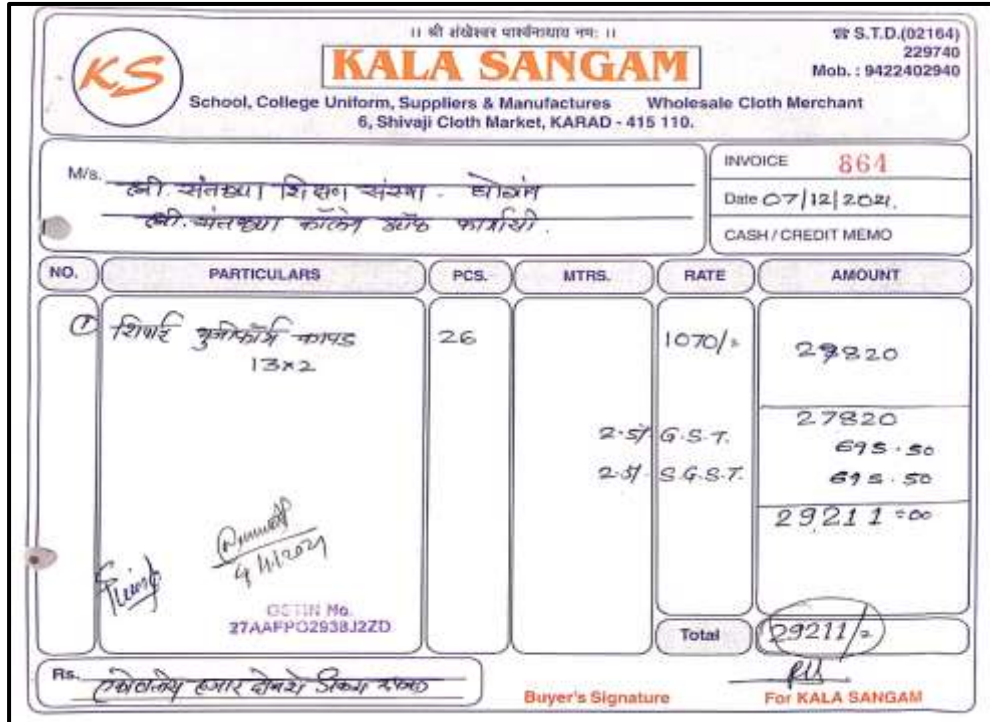 ।। श्री शंखेश्वर पार्श्वनाथाय नमः ।।
☎ S.T.D.(02164)
229740
Mob. : 9422402940
KS
KALA SANGAM
School, College Uniform, Suppliers & Manufactures Wholesale Cloth Merchant
6, Shivaji Cloth Market, KARAD - 415 110.
M/s. श्री. संतकृपा शिक्षण संस्था - घोगांव
श्री. संतकृपा कॉलेज ऑफ फार्मसी.
INVOICE 864
Date 07/12/2021.
CASH / CREDIT MEMO
NO. PARTICULARS PCS. MTRS. RATE AMOUNT
1 शिपाई युनिफॉर्म कापड 26 1070/= 27820
13×2
27820
2.5% G.S.T. 695.50
2.5% S.G.S.T. 695.50
29211=00
GSTIN No.
27AAFPO2938J2ZD
Total 29211/=
Rs. एकोणतीस हजार दोनशे अकरा रुपये
Buyer's Signature
For KALA SANGAM